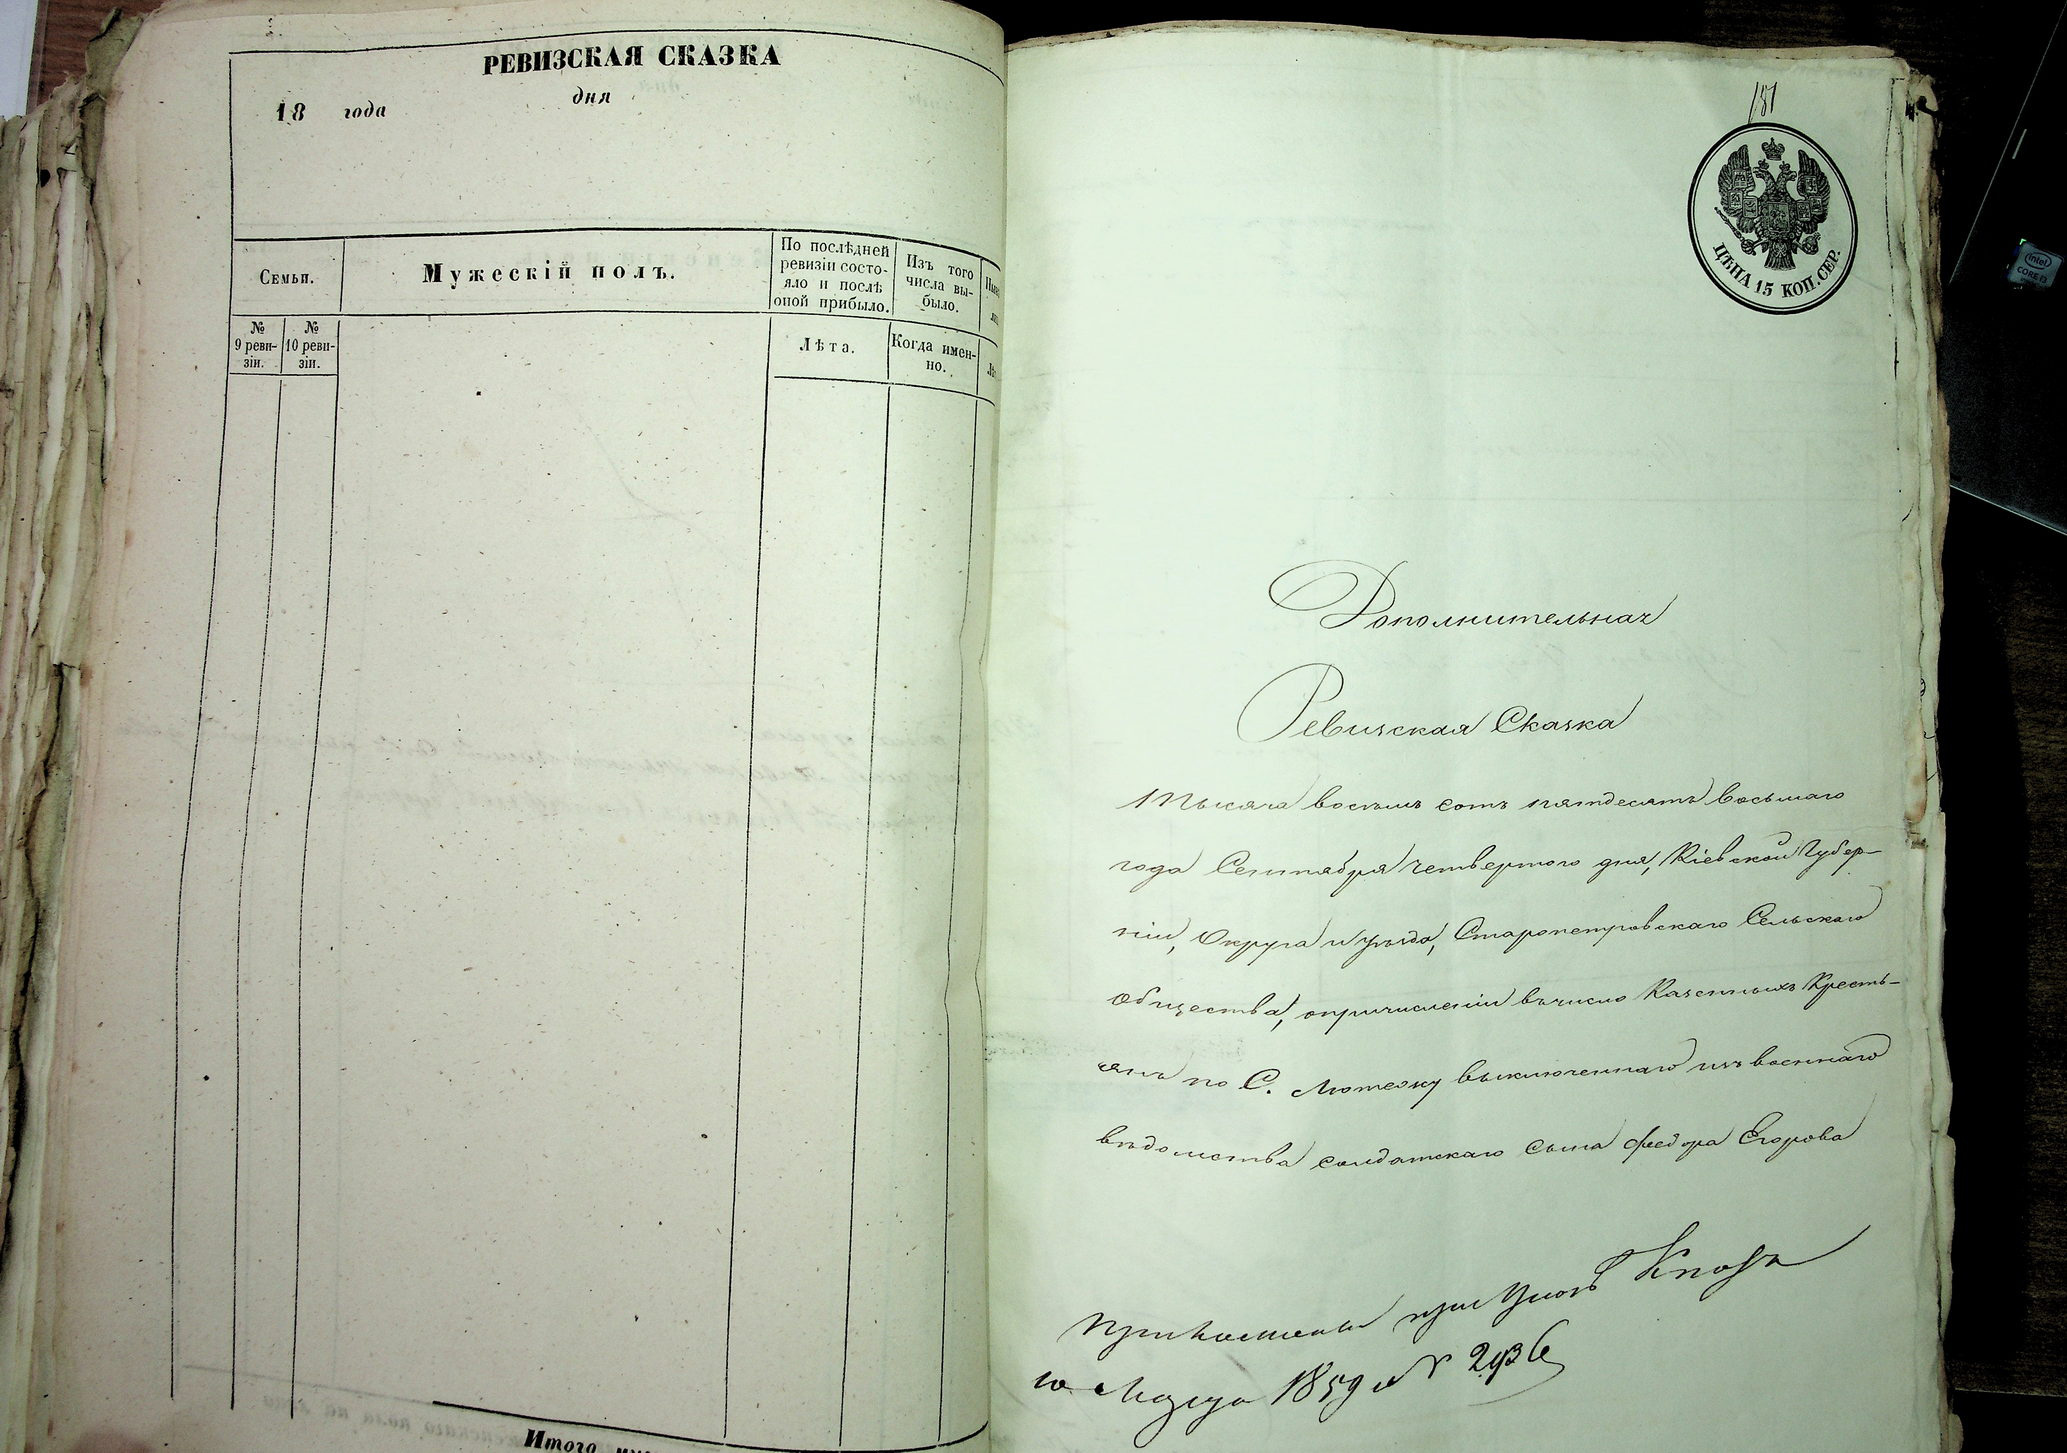 РЕВИЗСКАЯ СКАЗКА
18 года дня
Семьи.
Мужескій полъ.
По послѣдней
ревизіи состо-
яло и послѣ
оной прибыло.
Изъ того
числа вы-
было.
№
9 реви-
зіи.
№
10 реви-
зіи.
Лѣта.
Когда имен-
но.
Итого
181
ЦѢНА 15 КОП. СЕР.
Дополнительная
Ревизская Сказка
Тысяча восемь сотъ пятдесятъ восьмаго
года Сентября четвертого дня, Кіевской Губер-
ніи, Округа и уѣзда, Старопетровскаго Сельскаго
Общества, опричисленіи вчисло Казенныхъ Кресть-
янъ по С. Лютежу выключеннаго изъ военнаго
вѣдомства солдатскаго сына Федора Егорова
при
10 Марта 1859 №
intel
CORE i5